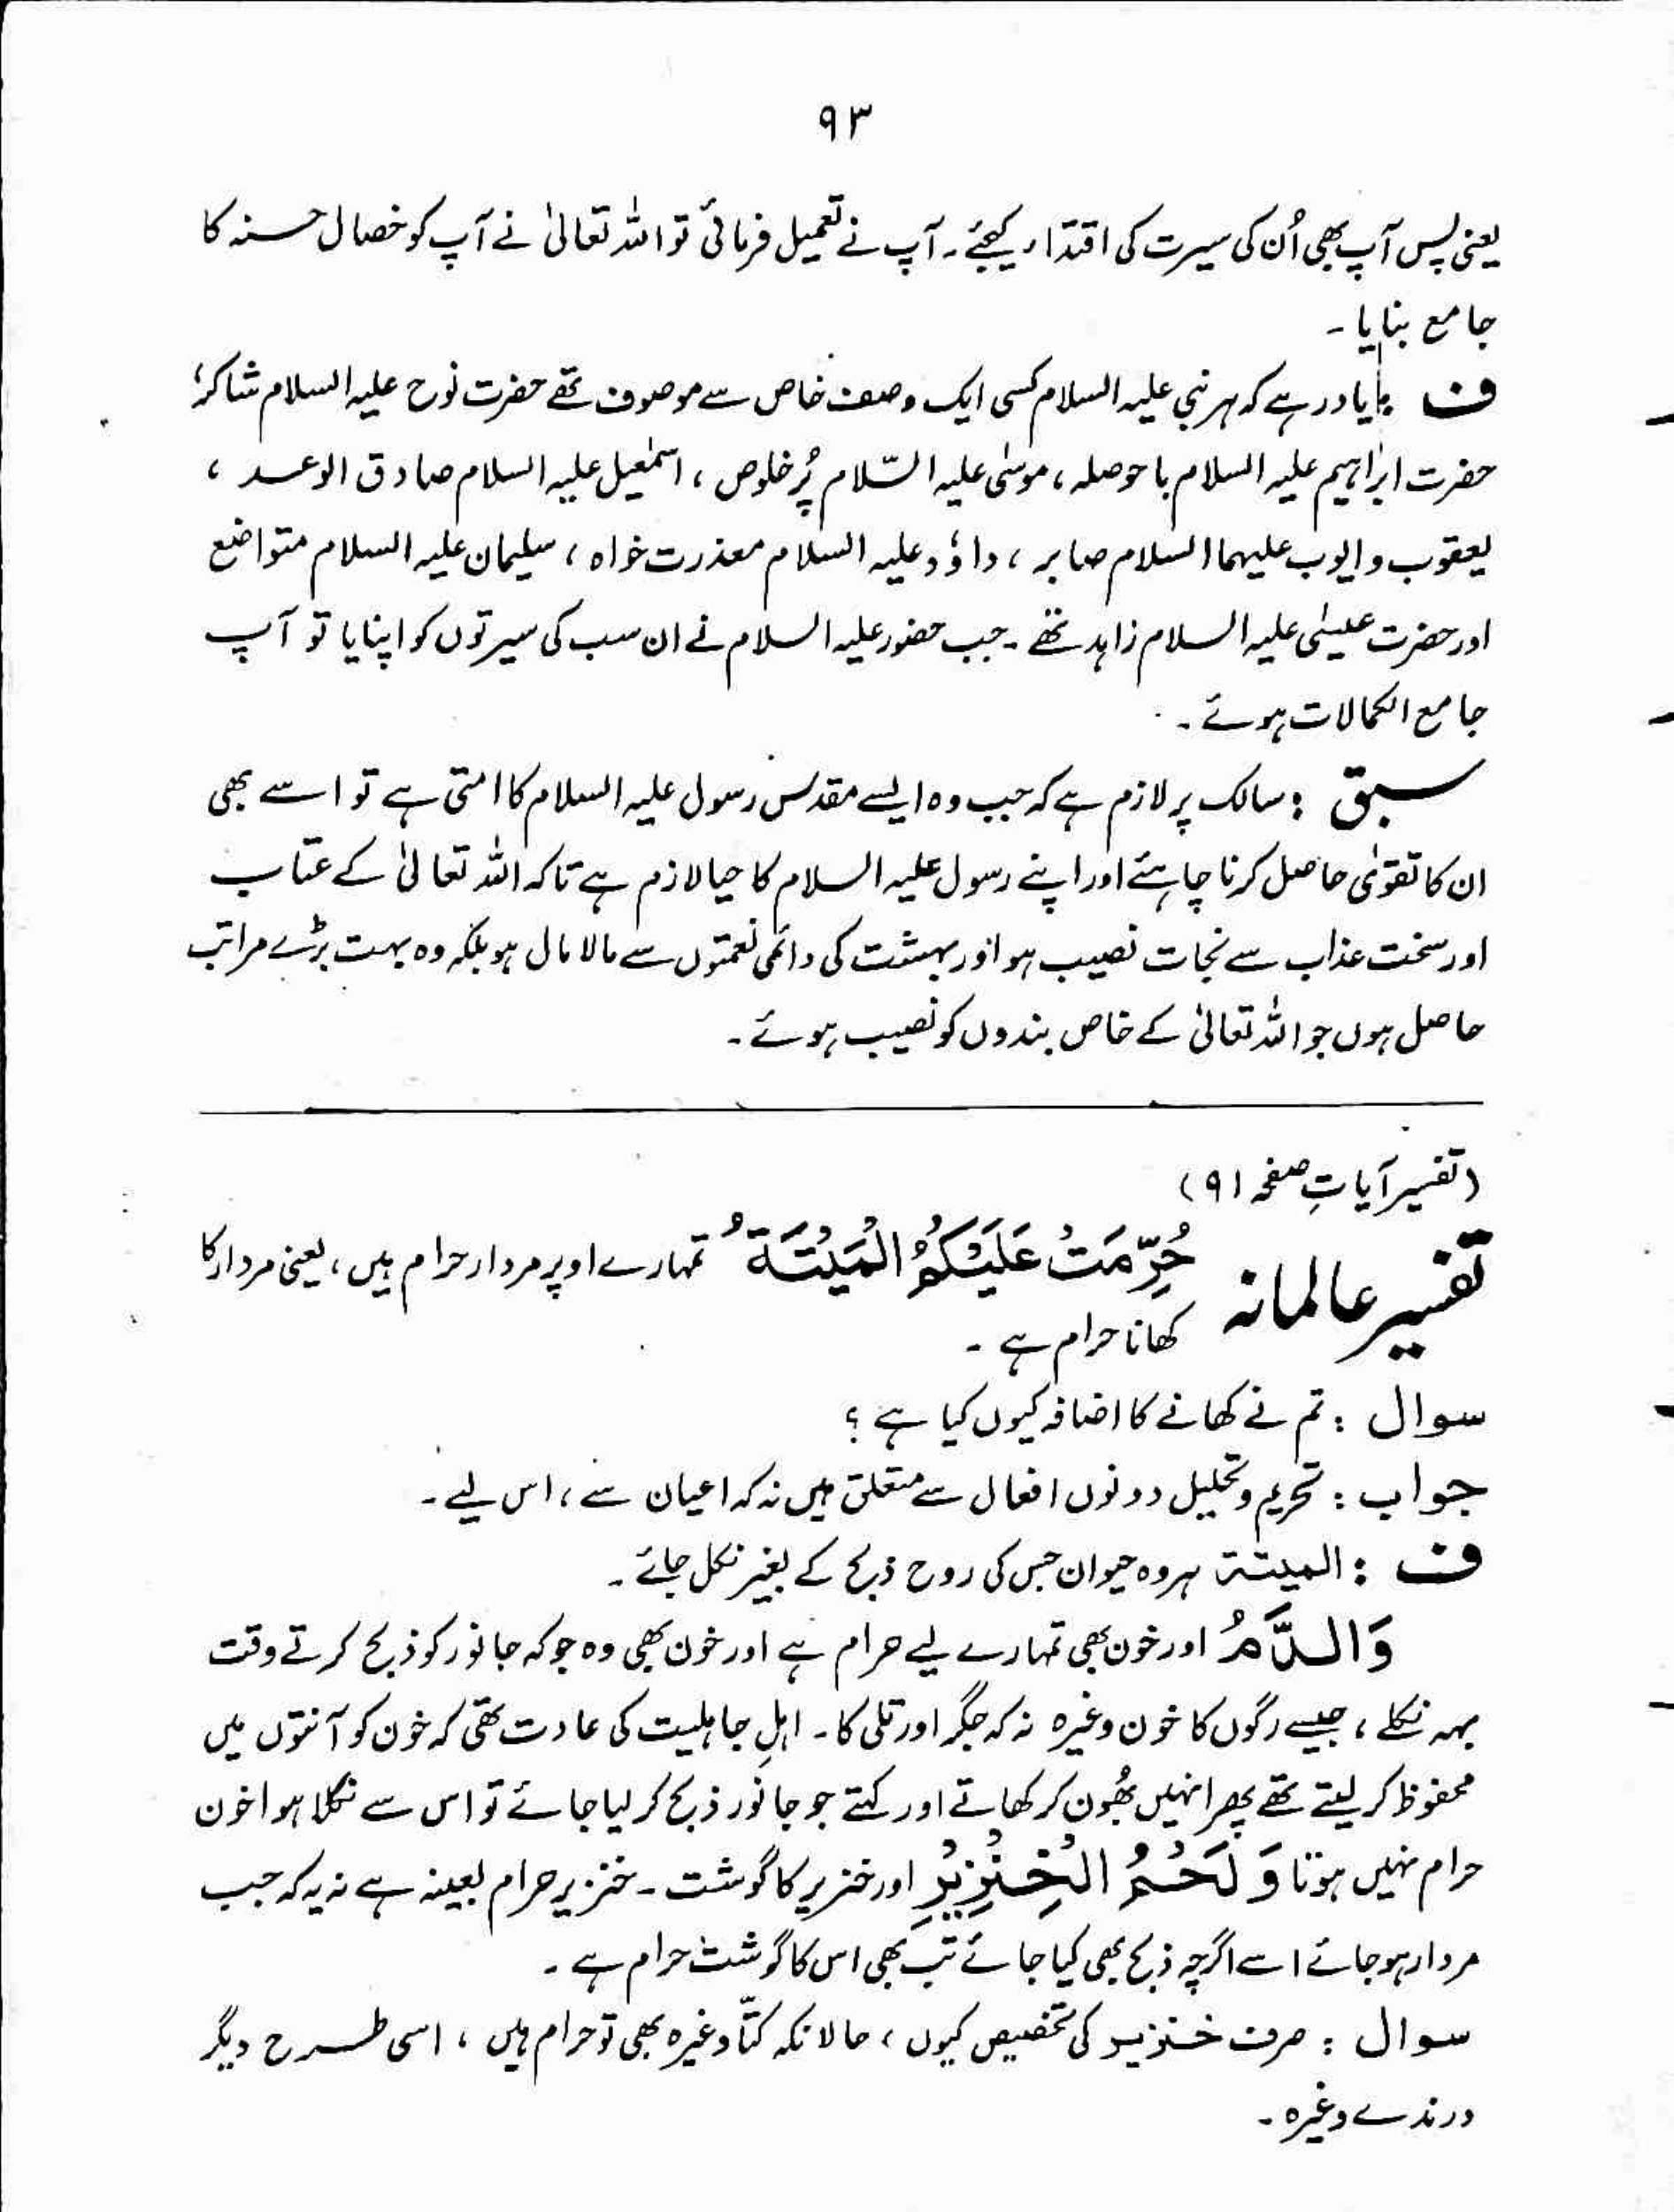 ۹۳
یعنی پس آپ بھی اُن کی سیرت کی اقتداء کیجئے۔ آپ نے تعمیل فرمائی تو اللہ تعالیٰ نے آپ کو خصال حسنہ کا
جامع بنایا۔
ف : یاد رہے کہ ہر نبی علیہ السلام کسی ایک وصف خاص سے موصوف تھے حضرت نوح علیہ السلام شاکر،
حضرت ابراہیم علیہ السلام باحوصلہ، موسٰی علیہ السّلام پُر خلوص، اسمٰعیل علیہ السلام صادق الوعد،
یعقوب و ایوب علیہما السلام صابر، داؤد علیہ السلام معذرت خواہ، سلیمان علیہ السلام متواضع
اور حضرت عیسٰی علیہ السلام زاہد تھے۔ جب حضور علیہ السلام نے ان سب کی سیرتوں کو اپنایا تو آپ
جامع الکمالات ہوئے۔
سبق : سالک پر لازم ہے کہ جب وہ ایسے مقدس رسول علیہ السلام کا امتی ہے تو اسے بھی
ان کا تقوٰی حاصل کرنا چاہئے اور اپنے رسول علیہ السلام کا حیا لازم ہے تاکہ اللہ تعالیٰ کے عتاب
اور سخت عذاب سے نجات نصیب ہو اور بہشت کی دائمی نعمتوں سے مالا مال ہو بلکہ وہ بہت بڑے مراتب
حاصل ہوں جو اللہ تعالیٰ کے خاص بندوں کو نصیب ہوئے۔
(تفسیر آیاتِ صفحہ ۹۱)
تفسیر عالمانہ حُرِّمَتْ عَلَیْکُمُ الْمَیْتَةُ تمہارے اوپر مردار حرام ہیں، یعنی مردار کا
کھانا حرام ہے۔
سوال : تم نے کھانے کا اضافہ کیوں کیا ہے؟
جواب : تحریم و تحلیل دونوں افعال سے متعلق ہیں نہ کہ اعیان سے، اس لیے۔
ف : المیتۃ ہر وہ حیوان جس کی روح ذبح کے بغیر نکل جائے۔
وَالدَّمُ اور خون بھی تمہارے لیے حرام ہے اور خون بھی وہ جو کہ جانور کو ذبح کرتے وقت
بہہ نکلے، جیسے رگوں کا خون وغیرہ نہ کہ جگر اور تلی کا۔ اہلِ جاہلیت کی عادت تھی کہ خون کو آنتوں میں
محفوظ کر لیتے تھے پھر انہیں بھُون کر کھاتے اور کہتے جو جانور ذبح کر لیا جائے تو اس سے نکلا ہوا خون
حرام نہیں ہوتا وَلَحْمُ الْخِنْزِیْرِ اور خنزیر کا گوشت۔ خنزیر حرام بعینہ ہے نہ یہ کہ جب
مردار ہو جائے اسے اگرچہ ذبح بھی کیا جائے تب بھی اس کا گوشت حرام ہے۔
سوال : صرف خنزیر کی تخصیص کیوں، حالانکہ کتّا وغیرہ بھی تو حرام ہیں، اسی طرح دیگر
درندے وغیرہ۔